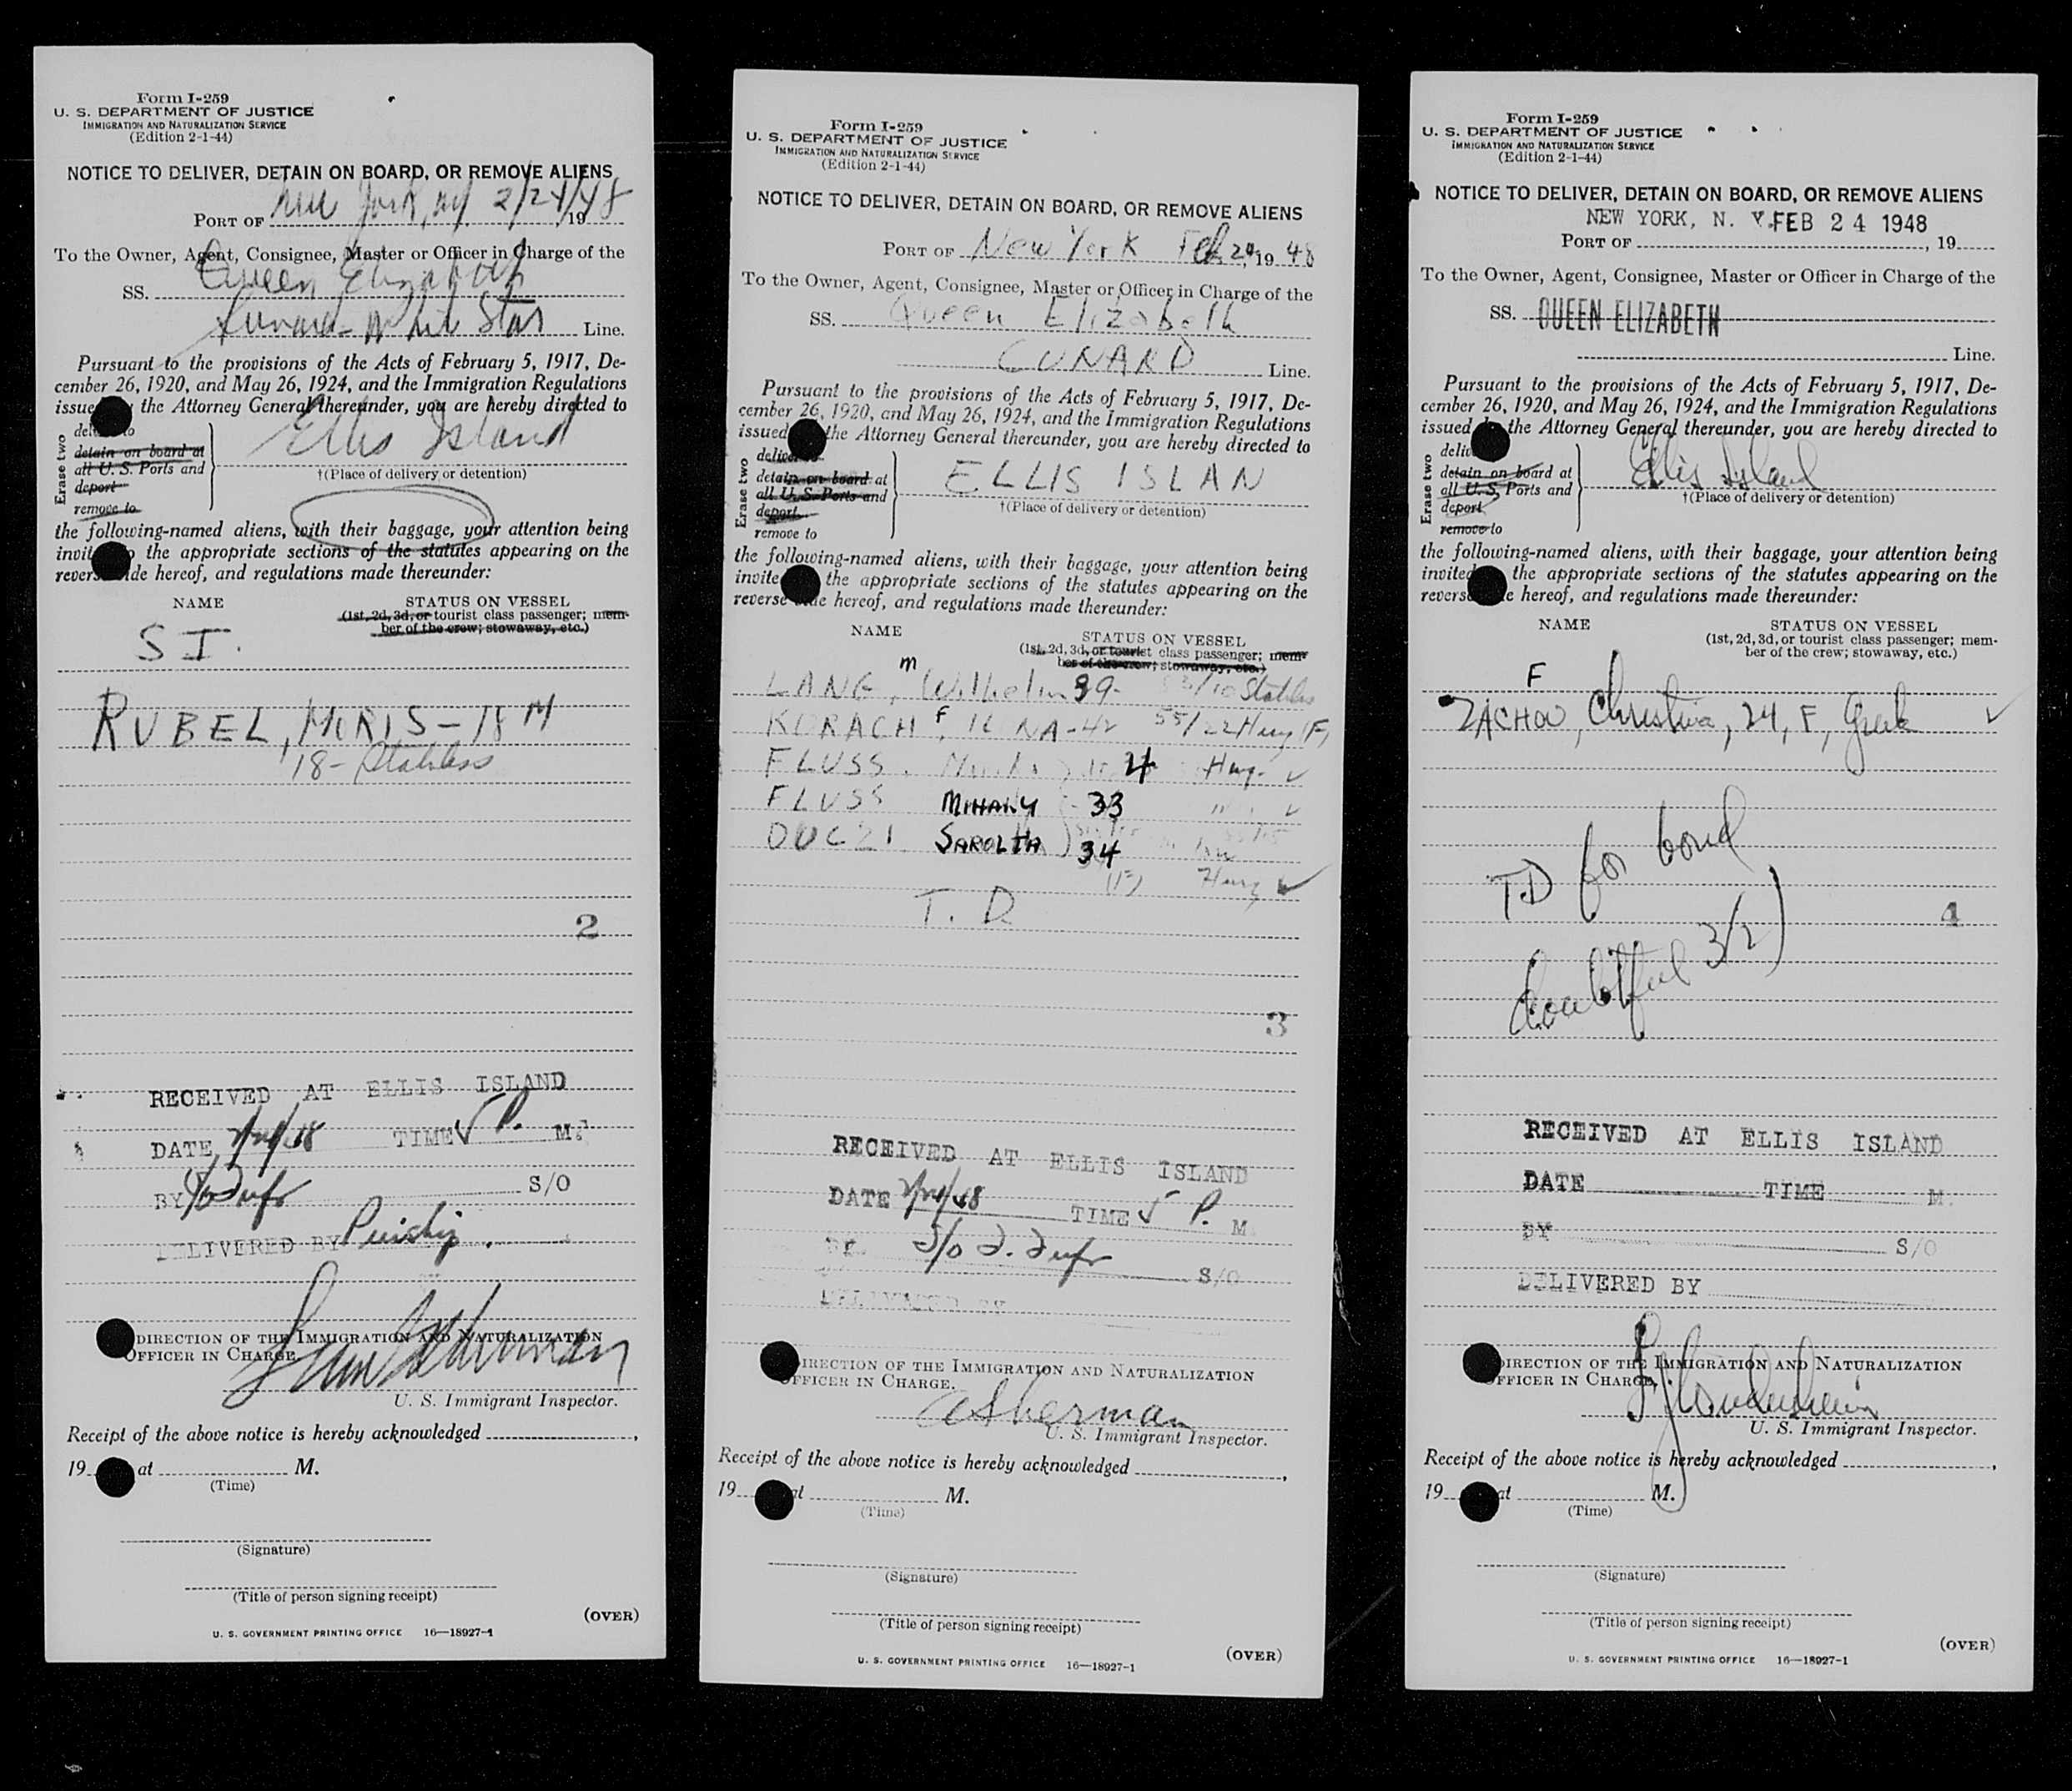 Form I-259
U. S. DEPARTMENT OF JUSTICE
IMMIGRATION AND NATURALIZATION SERVICE
(Edition 2-1-44)
NOTICE TO DELIVER, DETAIN ON BOARD, OR REMOVE ALIENS
PORT OF New York, NY 2/24/48, 19
To the Owner, Agent, Consignee, Master or Officer in Charge of the
SS. Queen Elizabeth
Cunard-White Star Line.
Pursuant to the provisions of the Acts of February 5, 1917, De-
cember 26, 1920, and May 26, 1924, and the Immigration Regulations
issue the Attorney General thereunder, you are hereby directed to
Erase two
del to
detain on board at
all U. S. Ports and
deport
remove to
Ellis Island
†(Place of delivery or detention)
the following-named aliens, with their baggage, your attention being
invit the appropriate sections of the statutes appearing on the
revers de hereof, and regulations made thereunder:
NAME
STATUS ON VESSEL
(1st, 2d, 3d, or tourist class passenger; mem-
ber of the crew; stowaway, etc.)
S I.
RUBEL, MORIS - 18 M
18 - Stateless
2
RECEIVED AT ELLIS ISLAND
DATE 2/24/48 TIME 5 P. M.
BY S/O
DELIVERED BY
DIRECTION OF THE IMMIGRATION AND NATURALIZATION
OFFICER IN CHARGE
U. S. Immigrant Inspector.
Receipt of the above notice is hereby acknowledged ,
19 at M.
(Time)
(Signature)
(Title of person signing receipt)
(OVER)
U. S. GOVERNMENT PRINTING OFFICE 16—18927-1
Form I-259
U. S. DEPARTMENT OF JUSTICE
IMMIGRATION AND NATURALIZATION SERVICE
(Edition 2-1-44)
NOTICE TO DELIVER, DETAIN ON BOARD, OR REMOVE ALIENS
PORT OF New York Feb 24, 19 48
To the Owner, Agent, Consignee, Master or Officer in Charge of the
SS. Queen Elizabeth
CUNARD Line.
Pursuant to the provisions of the Acts of February 5, 1917, De-
cember 26, 1920, and May 26, 1924, and the Immigration Regulations
issued the Attorney General thereunder, you are hereby directed to
Erase two
deliver
detain on board at
all U. S. Ports and
deport
remove to
ELLIS ISLAN
†(Place of delivery or detention)
the following-named aliens, with their baggage, your attention being
invite the appropriate sections of the statutes appearing on the
reverse de hereof, and regulations made thereunder:
NAME
STATUS ON VESSEL
(1st, 2d, 3d, or tourist class passenger; mem-
ber of the crew; stowaway, etc.)
m
LANG, Wilhelm 39 - Stateless
KORACH F, ILONA - 42 55/22 Hung (F)
FLUSS 4 Hung. ✓
FLUSS MIHALY 33 " ✓
SAROLTA 34
(F) Hung ✓
T. D
3
RECEIVED AT ELLIS ISLAND
DATE 2/24/48 TIME 5 P. M
S/O
DELIVERED BY
DIRECTION OF THE IMMIGRATION AND NATURALIZATION
OFFICER IN CHARGE.
A Sherman
U. S. Immigrant Inspector.
Receipt of the above notice is hereby acknowledged ,
19 at M.
(Time)
(Signature)
(Title of person signing receipt)
(OVER)
U. S. GOVERNMENT PRINTING OFFICE 16—18927-1
Form I-259
U. S. DEPARTMENT OF JUSTICE
IMMIGRATION AND NATURALIZATION SERVICE
(Edition 2-1-44)
NOTICE TO DELIVER, DETAIN ON BOARD, OR REMOVE ALIENS
NEW YORK, N. Y. FEB 24 1948
PORT OF , 19
To the Owner, Agent, Consignee, Master or Officer in Charge of the
SS. QUEEN ELIZABETH
Line.
Pursuant to the provisions of the Acts of February 5, 1917, De-
cember 26, 1920, and May 26, 1924, and the Immigration Regulations
issued the Attorney General thereunder, you are hereby directed to
Erase two
deliv
detain on board at
all U. S. Ports and
deport
remove to
Ellis Island
†(Place of delivery or detention)
the following-named aliens, with their baggage, your attention being
invited the appropriate sections of the statutes appearing on the
revers e hereof, and regulations made thereunder:
NAME
STATUS ON VESSEL
(1st, 2d, 3d, or tourist class passenger; mem-
ber of the crew; stowaway, etc.)
F
ZACHOU, Christina, 24, F, Greek ✓
TD for bond
4
doubtful 3/2)
RECEIVED AT ELLIS ISLAND
DATE TIME M.
BY S/O
DELIVERED BY
DIRECTION OF THE IMMIGRATION AND NATURALIZATION
OFFICER IN CHARGE.
U. S. Immigrant Inspector.
Receipt of the above notice is hereby acknowledged ,
19 at M.
(Time)
(Signature)
(Title of person signing receipt)
(OVER)
U. S. GOVERNMENT PRINTING OFFICE 16—18927-1